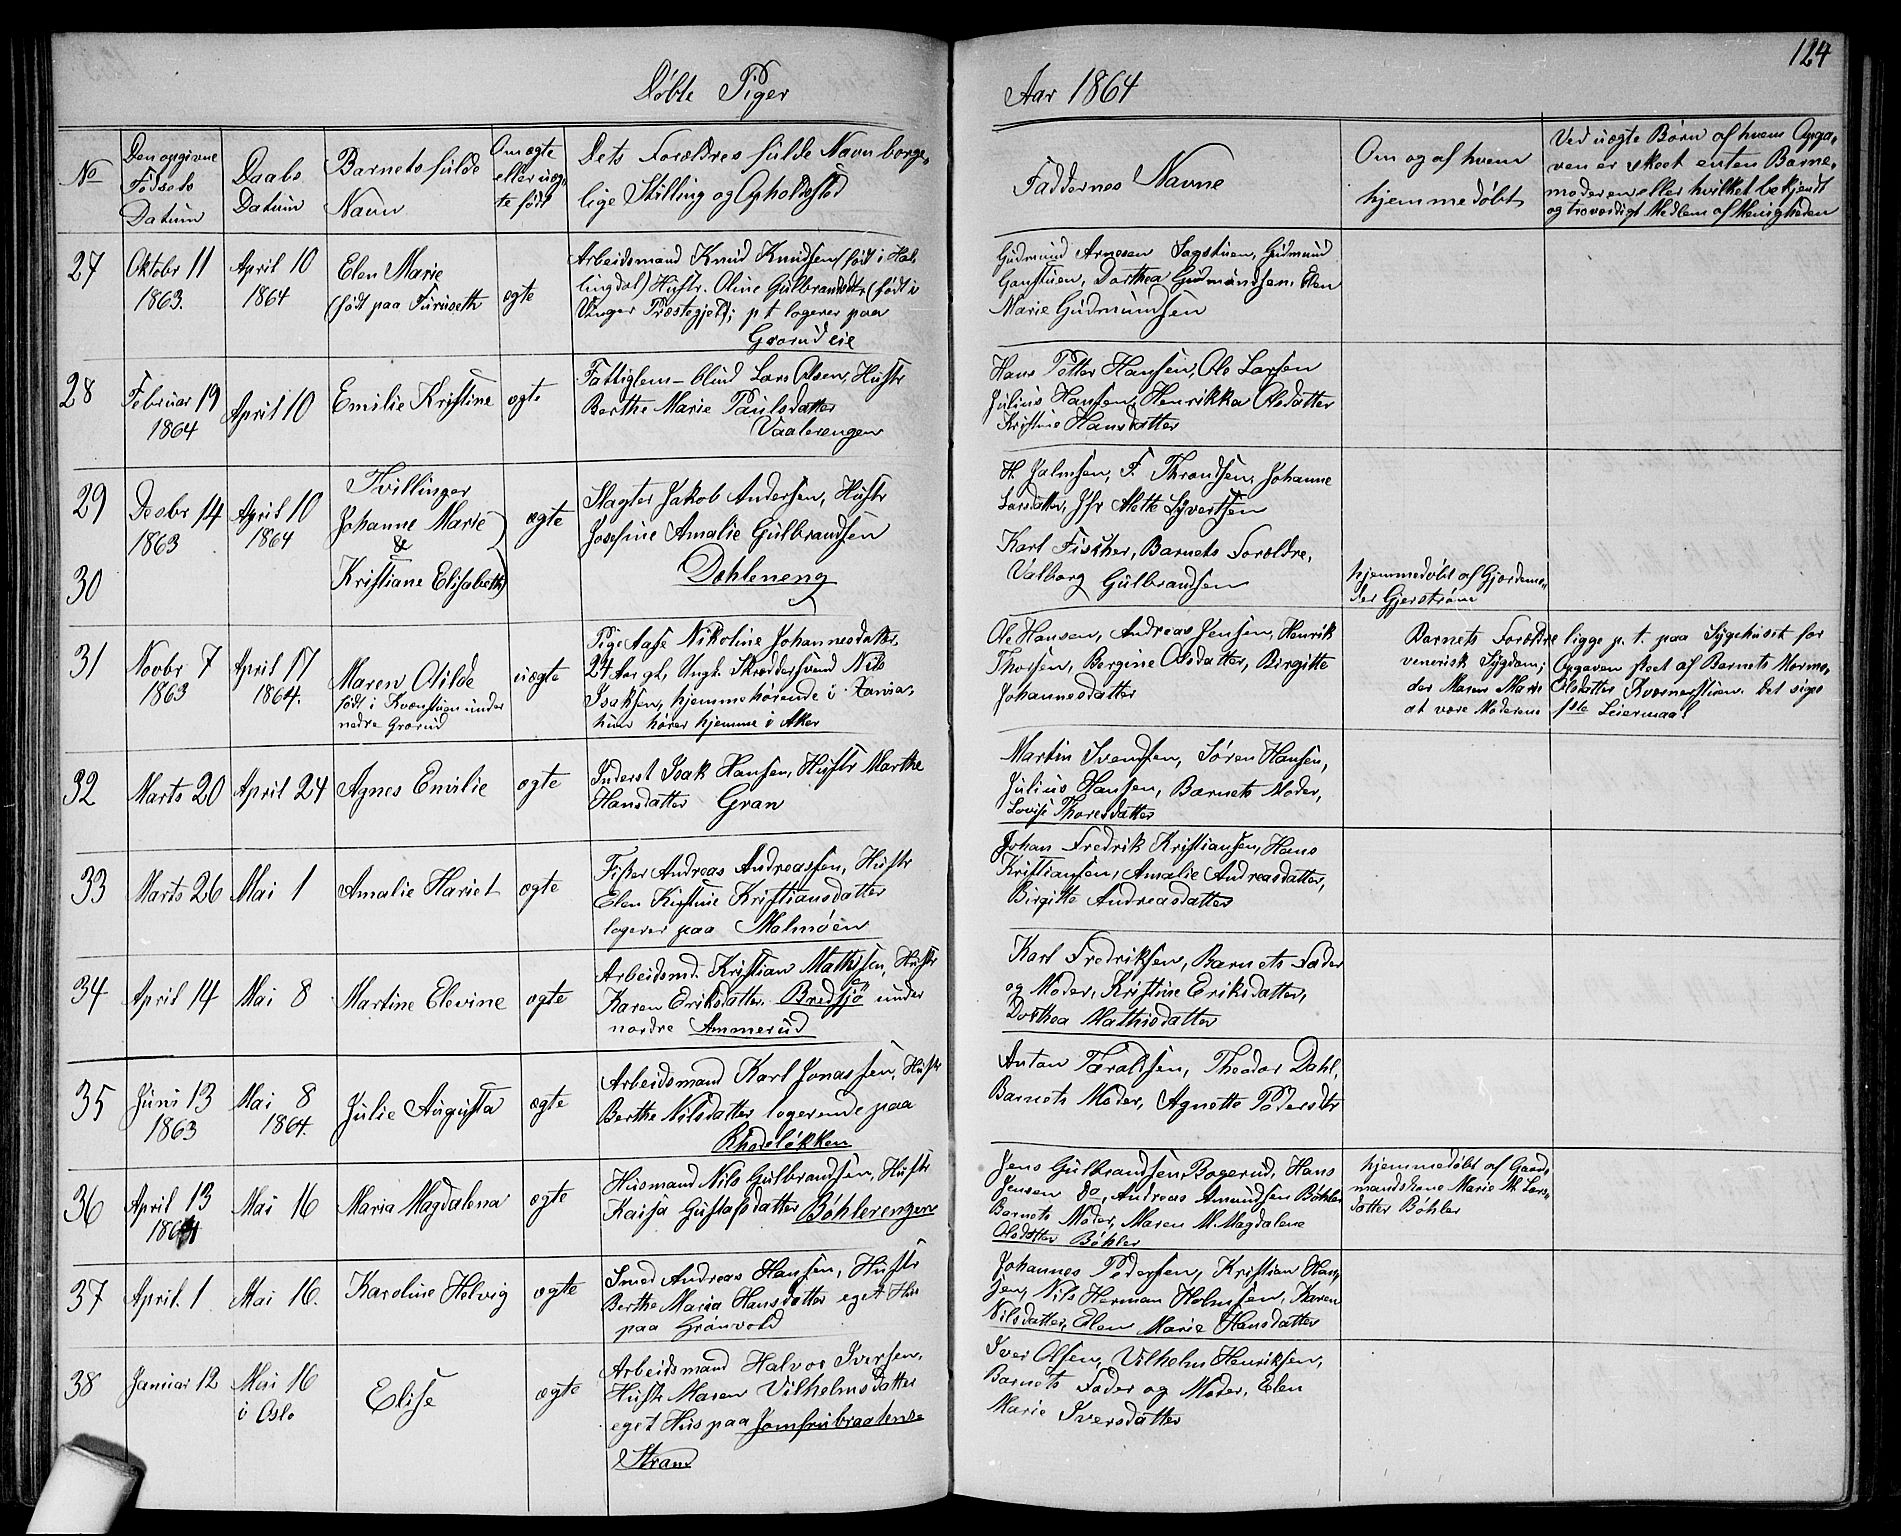 Døbte Piger
Aar 1864
124
No
Den opgivne
Fødsels
Datum
Daabs
Datum
Barnets fulde
Navn
Om ægte
eller uæg-
te født
Dets Forældres fulde Navn borge-
lige Stilling og Opholdsted
Faddernes Navne
Om og af hvem
hjemmedøbt
Ved uægte Børn af hvem Opga-
ven er skeet enten Barne-
moderen eller hvilket bekjendt
og troværdigt Medlem af Menigheden
27
Oktobr 11
1863.
April 10
1864
Elen Marie
(født paa Furuseth
ægte
Arbeidsmand Knud Knudsen (født i Hal-
lingdal) Hustr. Oline Gulbrandsdtr (født i
Vinger Præstegjeld; p t logerer paa
Grorud eie
Gudmund Arnesen Sagstuen, Gudmund
Gaustuen, Dorthea Gudmundsen, Elen
Marie Gudmundsen
28
Februar 19
1864
April 10
Emilie Kristine
ægte
Fattiglem - blind Lars Olsen, Hustr
Berthe Marie Paulsdatter
Vaalerengen
Hans Petter Hansen, Ole Larsen
Julius Hansen, Henrikka Olsdatter
Kristine Hansdatter
29
30
Decbr 14
1863
April 10
1864
Tvillinger
Johanne Marie
&
Kristiane Elisabeth
ægte
Slagter Jakob Andersen, Hustr
Josefine Amalie Gulbrandsen
Dehleneng
H. Jalmsen, F. Throndsen, Johanne
Larsdatter, Jfr Mette Syvertsen
Karl Fischer, Barnets Forældre,
Valborg Gulbrandsen
hjemmedøbt af Gjordemo-
der Gjerstrøm
31
Novbr 7
1863
April 17
1864.
Maren Otilde
født i Kværnstuen under
nedre Grorud
uægte
Pige Aase Nikoline Johannesdatter
24 Aar gl, Ungk. Skræddersvend Nils
Isaksen, hjemmehørende i Xania,
hun hører hjemme i Aker
Ole Hansen, Andreas Jensen, Henrik
Thorsen, Bergine Olsdatter, Birgitte
Johannesdatter
Barnets Forældre ligge p. t. paa Sygehuset for
venerisk Sygdom; Opgaven skeet af Barnets Mormo-
der Maren Marie Olsdatter Kværnerstuen. Det siges
at være Moderens 1ste Leiermaal
32
Marts 20
April 24
Agnes Emilie
ægte
Inderst Isak Hansen, Hustr Marthe
Hansdatter Gran
Martin Svendsen, Søren Hansen,
Julius Hansen, Barnets Moder,
Lovise Thoresdatter
33
Marts 26
Mai 1
Amalie Hariet
ægte
Fisker Andreas Andreassen, Hustr
Elen Kirstine Kristiansdatter
logerer paa Malmøen
Johan Fredrik Kristiansen, Hans
Kristiansen, Amalie Andreasdatter,
Birgitte Andreasdatter
34
April 14
Mai 8
Martine Elevine
ægte
Arbeidsmd. Kristian Mathisen, Hustr
Karen Eriksdatter. Bredsjø under
nordre Ammerud
Karl Fredriksen, Barnets Fader
og Moder, Kristine Eriksdatter,
Dorthea Mathisdatter
35
Juni 13
1863
Mai 8
1864.
Julie Augusta
ægte
Arbeidsmand Karl Jonassen, Hustr
Berthe Nilsdatter logerende paa
Rhodeløkken
Anton Taraldsen, Theodor Dahl,
Barnets Moder, Agnette Pedersdtr
36
April 13
1864
Mai 16
Maria Magdalena
ægte
Husmand Nils Gulbrandsen, Hustr
Kaisa Gustafsdatter Bøhlerengen
Jens Gulbrandsen Bogerud, Hans
Jensen do, Andreas Amundsen Bøhler
Barnets Moder, Maren M. Magdalene
Olsdatter Bøhler
hjemmedøbt af Gaard-
mandskone Marie M. Lars-
datter Bøhler
37
April. 1
Mai 16.
Karoline Helvig
ægte
Smed Andreas Hansen, Hustr
Berthe Maria Hansdatter eget Hus
paa Grønvold
Johannes Pedersen, Kristian Han-
sen, Nils Herman Holmsen, Karen
Nilsdatter, Elen Marie Hansdatter
38
Januar 12
Mai 16
i Oslo
Elise
ægte
Arbeidsmand Halvor Iversen,
Hustr Maren Vilhelmsdatter
eget Hus paa Jomfrubraatens
Strand
Iver Olsen, Vilhelm Henriksen,
Barnets Fader og Moder, Elen
Marie Iversdatter